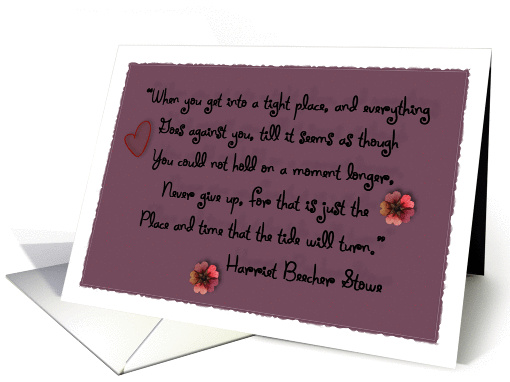 "When you get into a tight place, and everything
Goes against you, till it seems as though
You could not hold on a moment longer,
Never give up, for that is just the
Place and time that the tide will turn."
Harriet Beecher Stowe